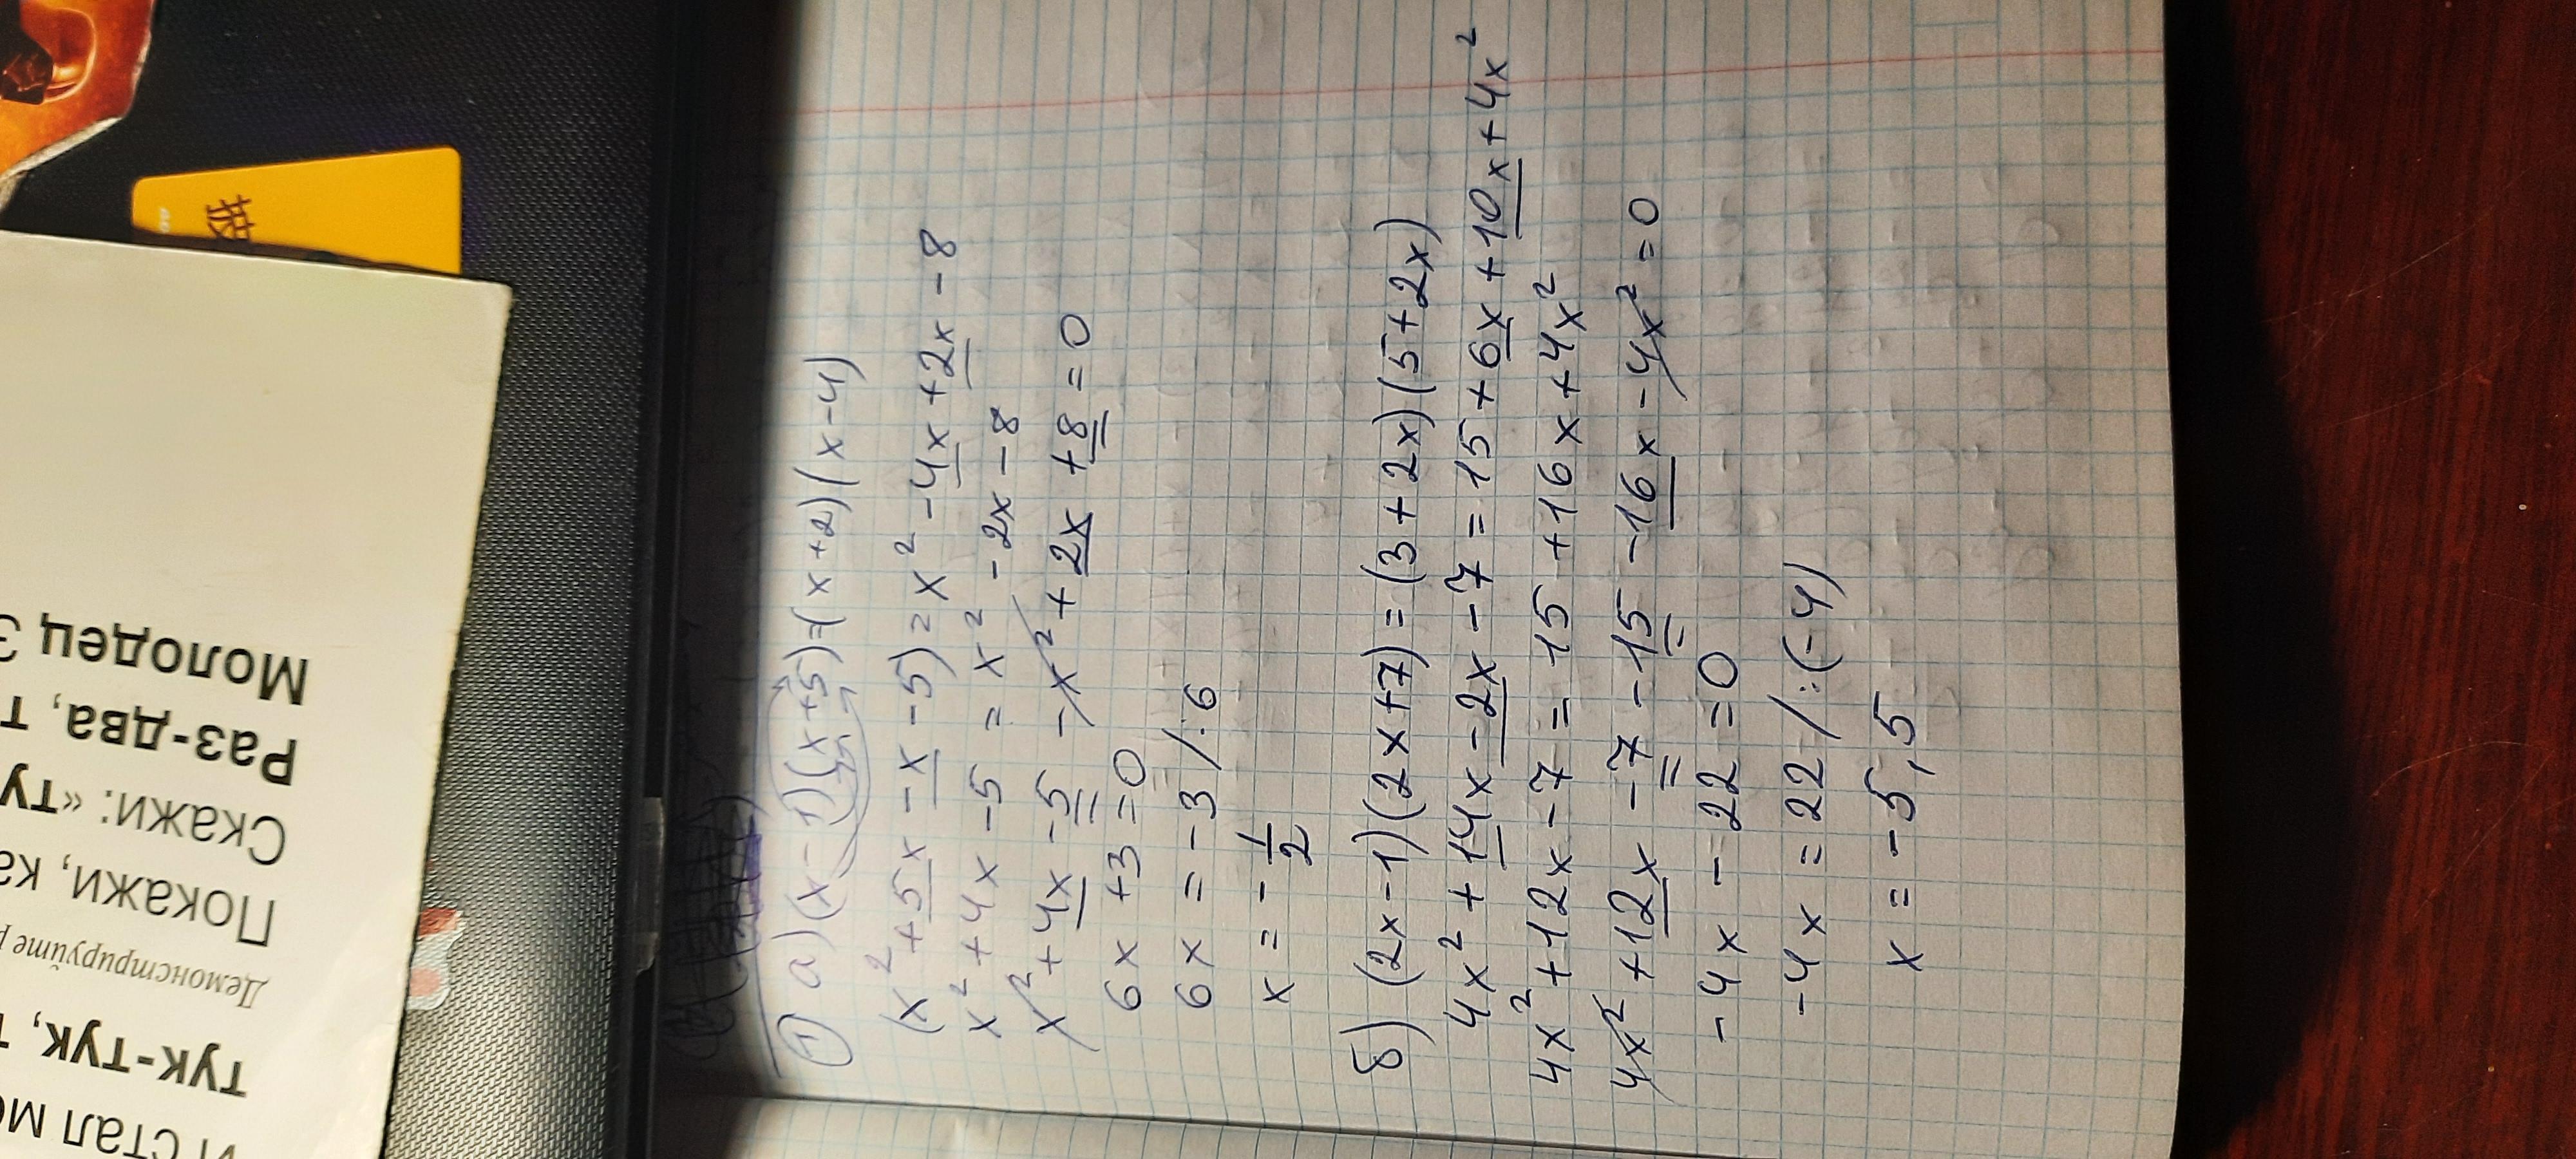 ① а) (x-1)(x+5)=(x+2)(x-4)
(x²+5x-x-5)=x²-4x+2x-8
x²+4x-5=x²-2x-8
x²+4x-5-x²+2x+8=0
6x+3=0
6x=-3/:6
x=-1/2
б) (2x-1)(2x+7)=(3+2x)(5+2x)
4x²+14x-2x-7=15+6x+10x+4x²
4x²+12x-7=15+16x+4x²
4x²+12x-7-15-16x-4x²=0
-4x-22=0
-4x=22/:(-4)
x=-5,5
И стал
тук-тук,
Демонстрируйте
Покажи,
Скажи: «
Раз-два,
Молодец